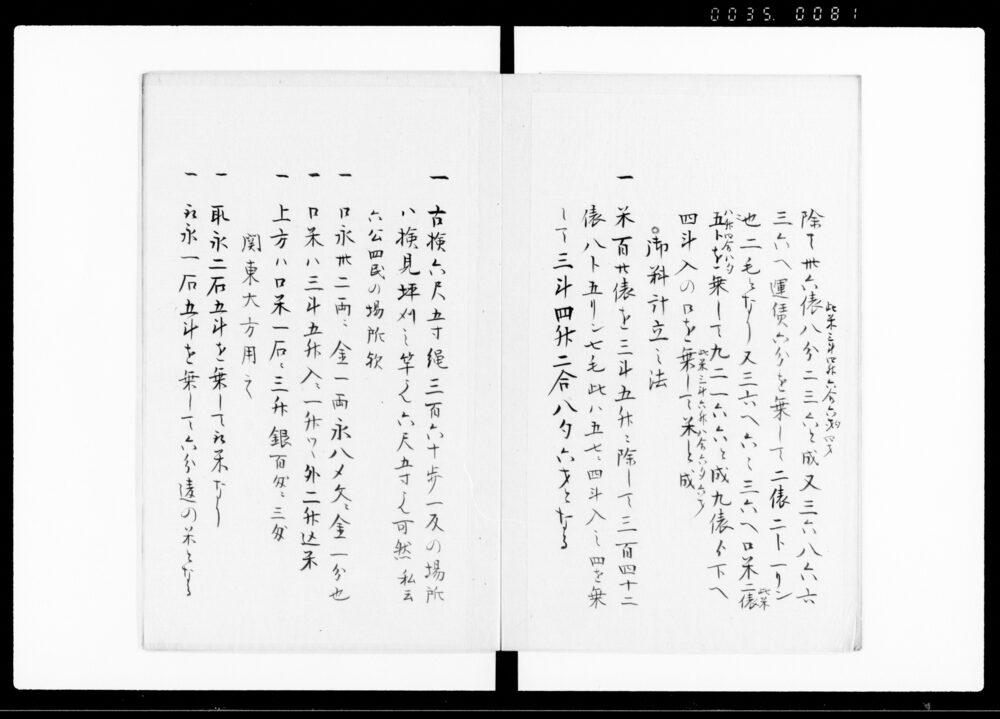 0035.0081
除て卅六俵八分二三六と成又三六八六六
此米三斗四升六合六勺四才
三六へ運賃六分を乗して二俵二ト一リン
也二毛となり又三六へ六ミ三六へ口米二俵
此米
八升四合八夕
五トを乗して九二一六六と成九俵分下へ
四斗入の口を乗して米と成
此米三斗六升八合六夕六才
○御料計立之法
一 米百廿俵を三斗五升ニ除して三百四十二
俵八ト五リン七毛此ハ五七ニ四斗入之四を乗
して三斗四升二合八夕六才となる
一 古検六尺五寸縄三百六十歩一反の場所
ハ検見坪刈之竿も六尺五寸も可然私云
六公四民の場所歟
一 口永卅二両ニ金一両永八〆欠ニ金一分也
一 口米ハ三斗五升入ニ一升ツヽ外二升込米
一 上方ハ口米一石ニ三升銀百匁ニ三匁
関東大方用之
一 取永二石五斗を乗して取米なり
一 取永一石五斗を乗して六分違の米となる